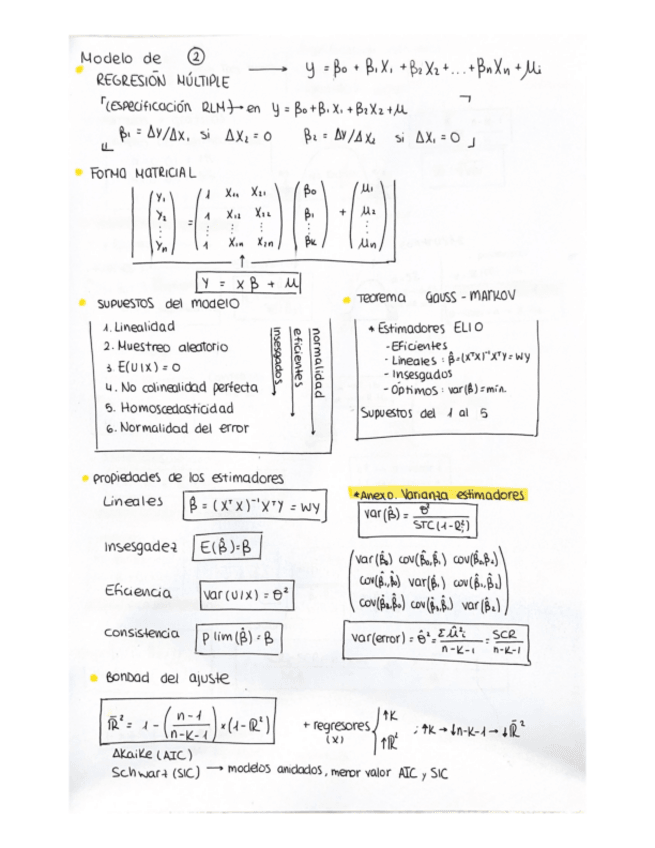 Modelo de ②
REGRESIÓN MÚLTIPLE ⟶ y = β₀ + β₁X₁ + β₂X₂ + ... + βnXn + μi
(especificación RLM) → en y = β₀ + β₁X₁ + β₂X₂ + μ
β₁ = Δy/ΔX₁ si ΔX₂ = 0 β₂ = Δy/ΔX₂ si ΔX₁ = 0
FORMA MATRICIAL
(y₁) = (1 X₁₁ X₂₁) (β₀) + (μ₁)
(y₂) (1 X₁₂ X₂₂) (β₁) (μ₂)
(⋮) (⋮ ⋮ ⋮) (⋮) (⋮)
(yn) (1 X₁n X₂n) (βk) (μn)
↑
Y = X β + μ
SUPUESTOS del modelo
1. Linealidad
2. Muestreo aleatorio
3. E(U|X) = 0
4. No colinealidad perfecta
5. Homoscedasticidad
6. Normalidad del error
insesgados
eficientes
normalidad
Teorema GAUSS - MARKOV
* Estimadores ELIO
- Eficientes
- Lineales : β̂ = (XᵀX)⁻¹XᵀY = WY
- Insesgados
- Óptimos : var(β̂) = min.
Supuestos del 1 al 5
Propiedades de los estimadores
Lineales β̂ = (XᵀX)⁻¹XᵀY = WY
Insesgadez E(β̂) = β
Eficiencia var(U|X) = θ²
Consistencia p lim(β̂) = β
*Anexo. Varianza estimadores
var(β̂) = θ² / STC(1-R²ᵢ)
(var(β̂₀) cov(β̂₀,β̂₁) cov(β̂₀,β̂₂))
(cov(β̂₁,β̂₀) var(β̂₁) cov(β̂₁,β̂₂))
(cov(β̂₂,β̂₀) cov(β̂₂,β̂₁) var(β̂₂))
var(error) = θ̂² = Σû²ᵢ / n-k-1 = SCR / n-k-1
BONDAD del ajuste
R̄² = 1 - (n-1 / n-k-1) × (1-R²)
+ regresores (X) { ↑k ↑R² ; ↑k → ↓n-k-1 → ↓R̄²
Akaike (AIC)
Schwarz (SIC) → modelos anidados, menor valor AIC y SIC